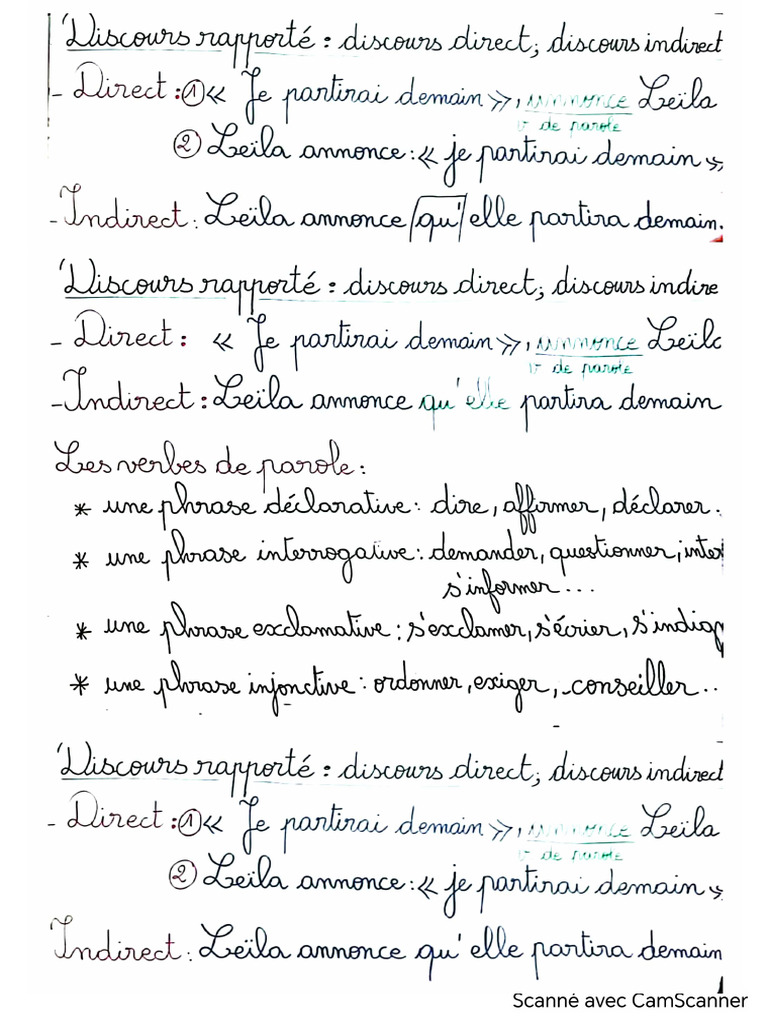 Discours rapporté : discours direct, discours indirect
- Direct : ① « Je partirai demain », annonce Leïla
v de parole
② Leïla annonce : « je partirai demain »,
- Indirect : Leïla annonce qu' elle partira demain.
Discours rapporté : discours direct, discours indire
- Direct : « Je partirai demain », annonce Leïl
v de parole
- Indirect : Leïla annonce qu'elle partira demain
Les verbes de parole :
* une phrase déclarative : dire, affirmer, déclarer.
* une phrase interrogative : demander, questionner, inter
s'informer...
* une phrase exclamative : s'exclamer, s'écrier, s'indig
* une phrase injonctive : ordonner, exiger, conseiller..
Discours rapporté : discours direct, discours indirect
- Direct : ① « Je partirai demain », annonce Leïla
v de parole
② Leïla annonce : « je partirai demain »
Indirect : Leïla annonce qu'elle partira demain
Scanné avec CamScanner